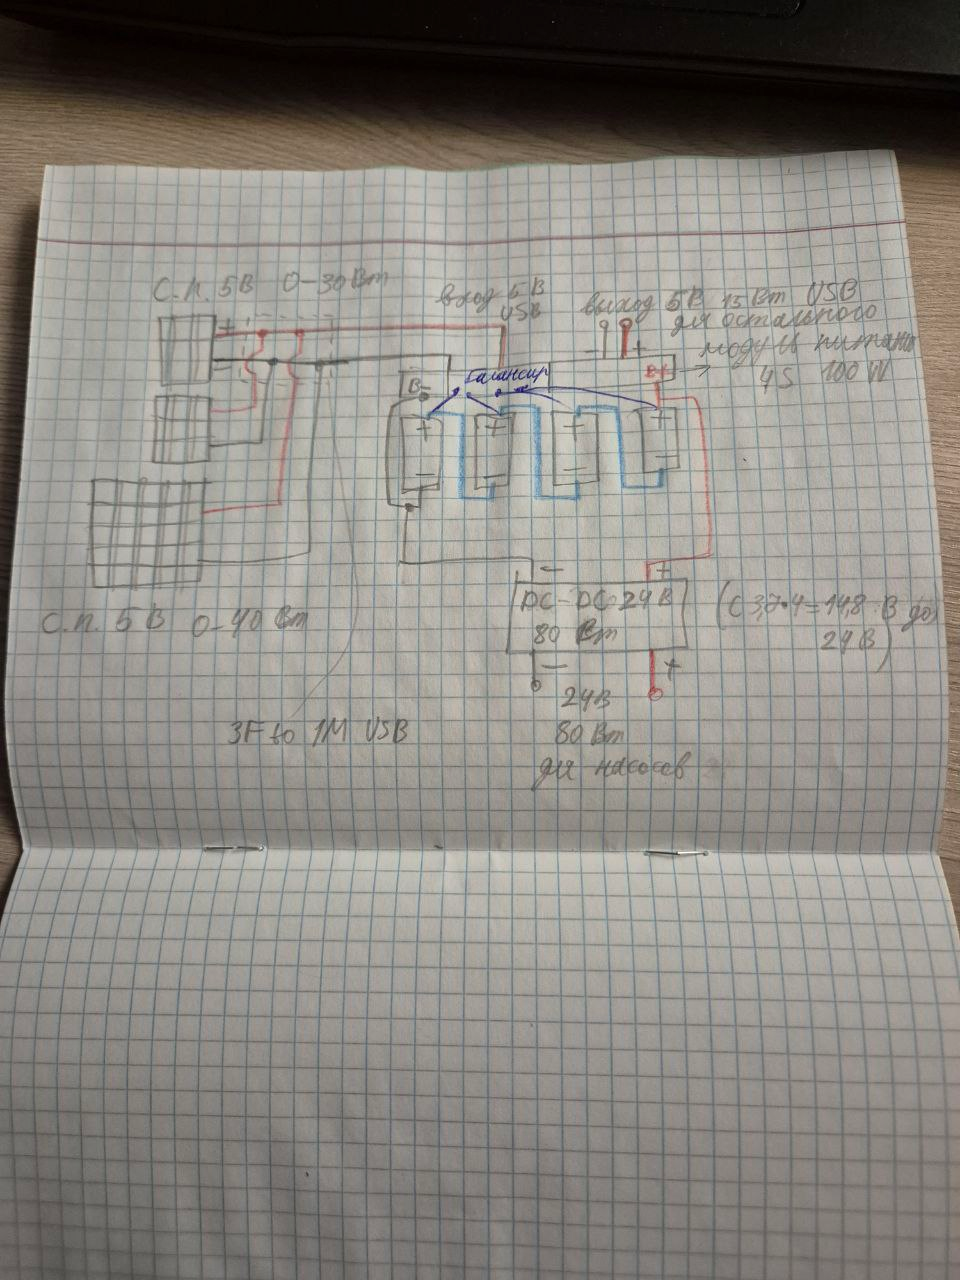 С.П. 5В 0-30Вт
вход 5В
USB
выход 5В 15Вт USB
для остального
модуль питания
4S 100W
+
-
- +
B-
Балансир
B+
+ + + +
- - - -
С.П. 5В 0-40Вт
- +
DC-DC 24В
80 Вт
(С 3,7•4=14,8 В до
24В)
- +
24В
80 Вт
для насосов
3F to 1M USB